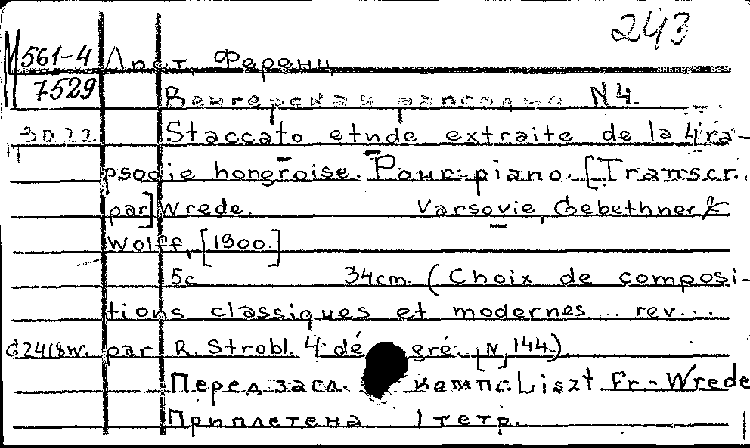 243
561-4 Лист, Ференц
7529 Венгерская рапсодия N 4.
Staccato etude extraite de la 4 ra-
psodie hongroise. Pour piano. [Transcr.
par] Wrede. Varsovie, Gebethner &
Wolff, [1900.]
5c 34cm. (Choix de composi-
tions classiques et modernes .. rev...
G2418w. par R. Strobl. 4 dé gré. [N 144.)
Перед загл. комп: Liszt Fr. - Wrede
Приплетена 1 тетр.